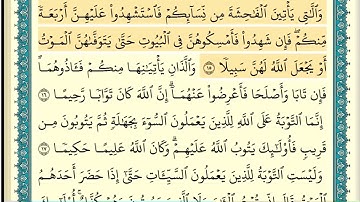 وَٱلَّٰتِي يَأۡتِينَ ٱلۡفَٰحِشَةَ مِن نِّسَآئِكُمۡ فَٱسۡتَشۡهِدُواْ عَلَيۡهِنَّ أَرۡبَعَةٗ
مِّنكُمۡۖ فَإِن شَهِدُواْ فَأَمۡسِكُوهُنَّ فِي ٱلۡبُيُوتِ حَتَّىٰ يَتَوَفَّىٰهُنَّ ٱلۡمَوۡتُ
أَوۡ يَجۡعَلَ ٱللَّهُ لَهُنَّ سَبِيلٗا ١٥ وَٱلَّذَانِ يَأۡتِيَٰنِهَا مِنكُمۡ فَـَٔاذُوهُمَاۖ
فَإِن تَابَا وَأَصۡلَحَا فَأَعۡرِضُواْ عَنۡهُمَآۗ إِنَّ ٱللَّهَ كَانَ تَوَّابٗا رَّحِيمًا ١٦
إِنَّمَا ٱلتَّوۡبَةُ عَلَى ٱللَّهِ لِلَّذِينَ يَعۡمَلُونَ ٱلسُّوٓءَ بِجَهَٰلَةٖ ثُمَّ يَتُوبُونَ مِن
قَرِيبٖ فَأُوْلَٰٓئِكَ يَتُوبُ ٱللَّهُ عَلَيۡهِمۡۗ وَكَانَ ٱللَّهُ عَلِيمًا حَكِيمٗا ١٧
وَلَيۡسَتِ ٱلتَّوۡبَةُ لِلَّذِينَ يَعۡمَلُونَ ٱلسَّيِّـَٔاتِ حَتَّىٰٓ إِذَا حَضَرَ أَحَدَهُمُ